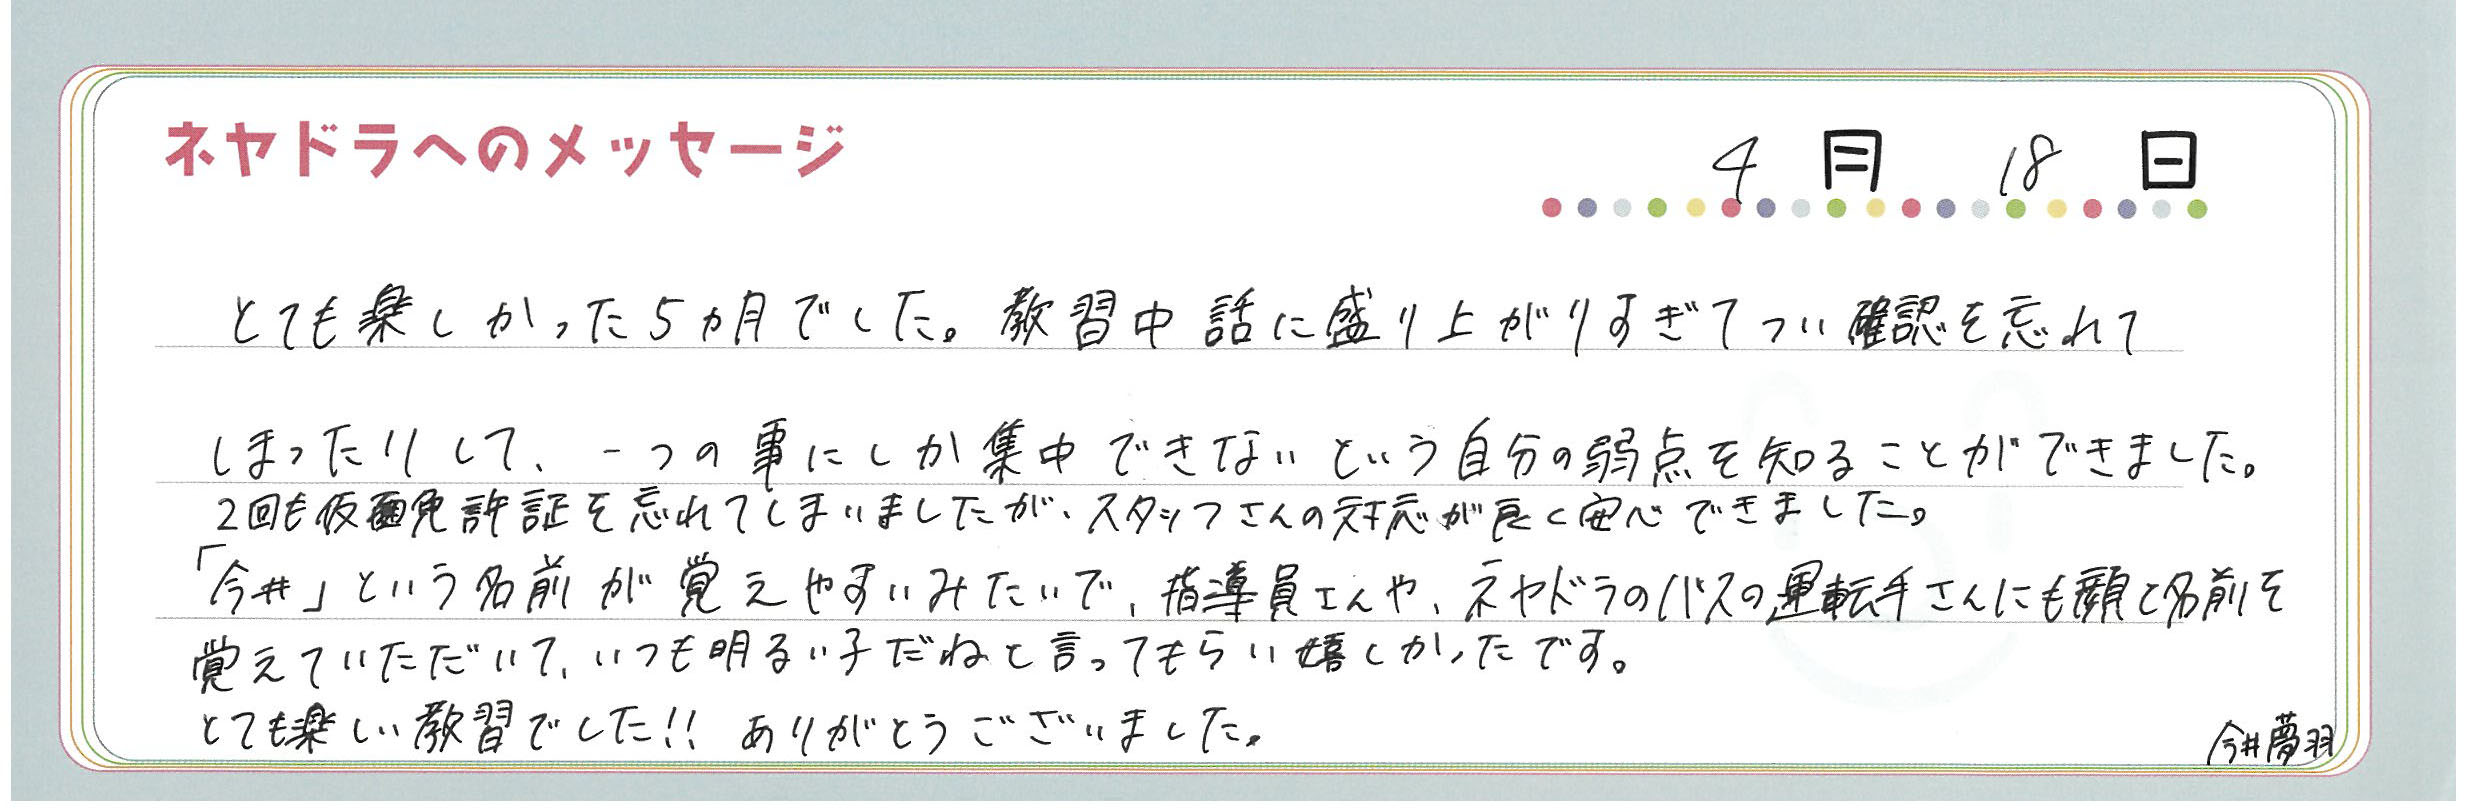 ネヤドラへのメッセージ
4月 18日
とても楽しかった5ヵ月でした。教習中話に盛り上がりすぎてつい確認を忘れて
しまったりして、一つの事にしか集中できないという自分の弱点を知ることができました。
2回も仮面免許証を忘れてしまいましたが、スタッフさんの対応が良く安心できました。
「今井」という名前が覚えやすいみたいで、指導員さんや、ネヤドラのバスの運転手さんにも顔と名前を
覚えていただいて、いつも明るい子だねと言ってもらい嬉しかったです。
とても楽しい教習でした!! ありがとうございました。
今井夢羽